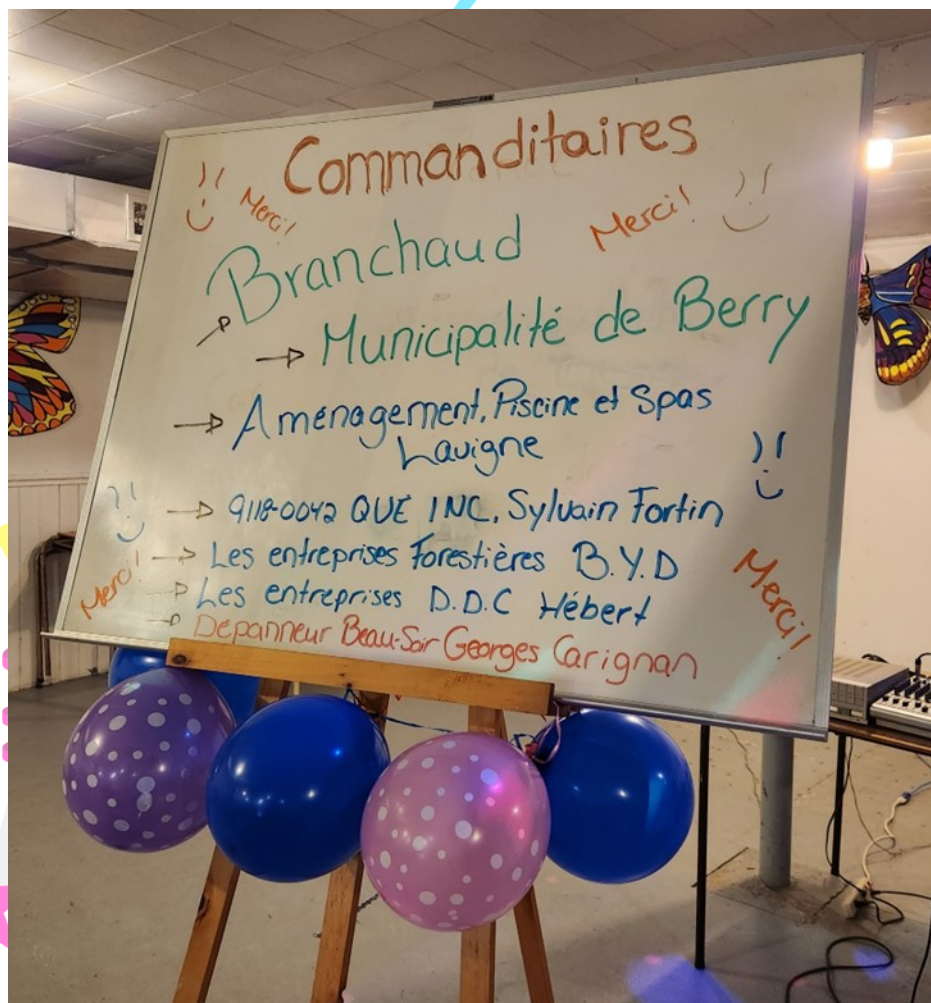 Commanditaires
Merci!
Merci!
Branchaud
Municipalité de Berry
Aménagement, Piscine et Spas
Lavigne
9118-0042 QUE INC. Sylvain Fortin
Les entreprises Forestières B.Y.D
Merci!
Merci!
Les entreprises D.D.C Hébert
Dépanneur Beau-Soir Georges Carignan